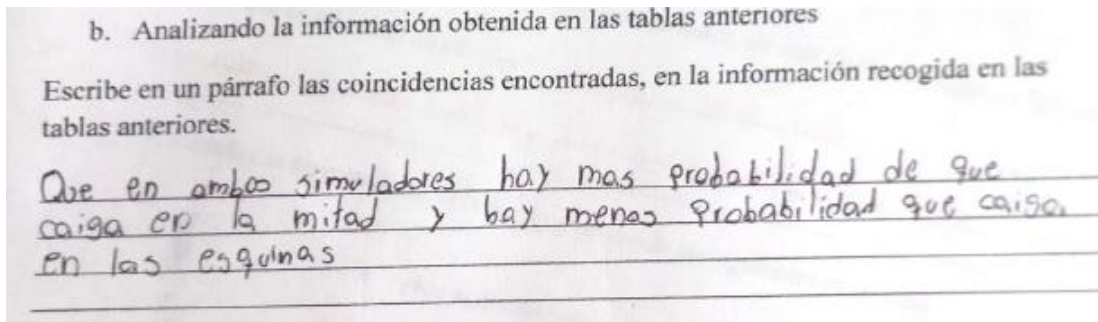 b. Analizando la información obtenida en las tablas anteriores
Escribe en un párrafo las coincidencias encontradas, en la información recogida en las
tablas anteriores.
Que en ambos simuladores hay mas probabilidad de que
caiga en la mitad y hay menos probabilidad que caiga
en las esquinas